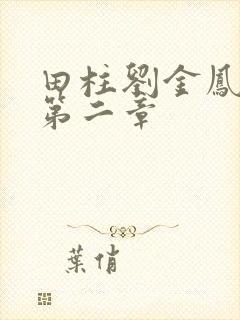 田柱劉金鳳
第二章
葉俏